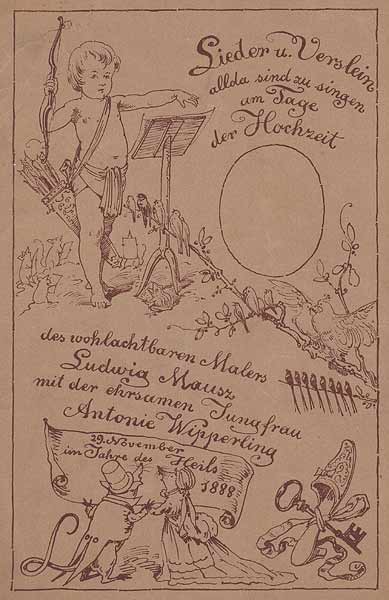 Lieder u. Verslein
allda sind zu singen
am Tage
der Hochzeit
des wohlachtbaren Malers
Ludwig Mausz
mit der ehrsamen Jungfrau
Antonie Wipperling
29. November
im Jahre des Heils
1888